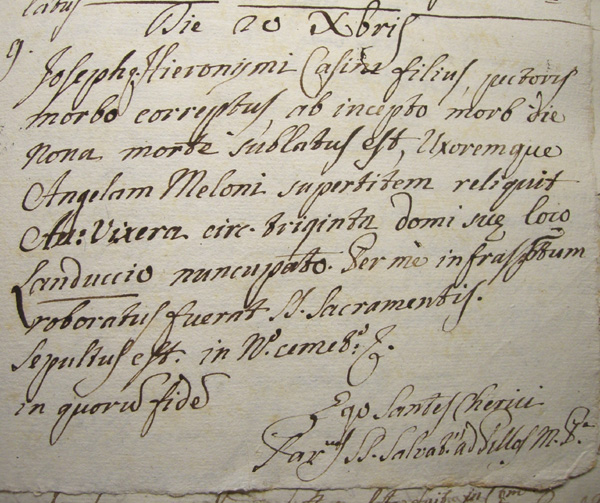 latus
Die 20 Xbris
9.
Joseph9 Hieronymi Casini filius, pectoris
morbo correptus, ab incepto morb die
nona morte sublatus est, Uxoremque
Angelam Meloni supertitem reliquit
An: Vixera circ. triginta domi suę loco
Sanduccio nuncupato. Per me infrascptum
roboratus fuerat SS. Sacramentis.
Sepultus est. in No. cemeto.
in quorū fidē
Ego Santes Cherici
SS. Salvab. ad Villas M.